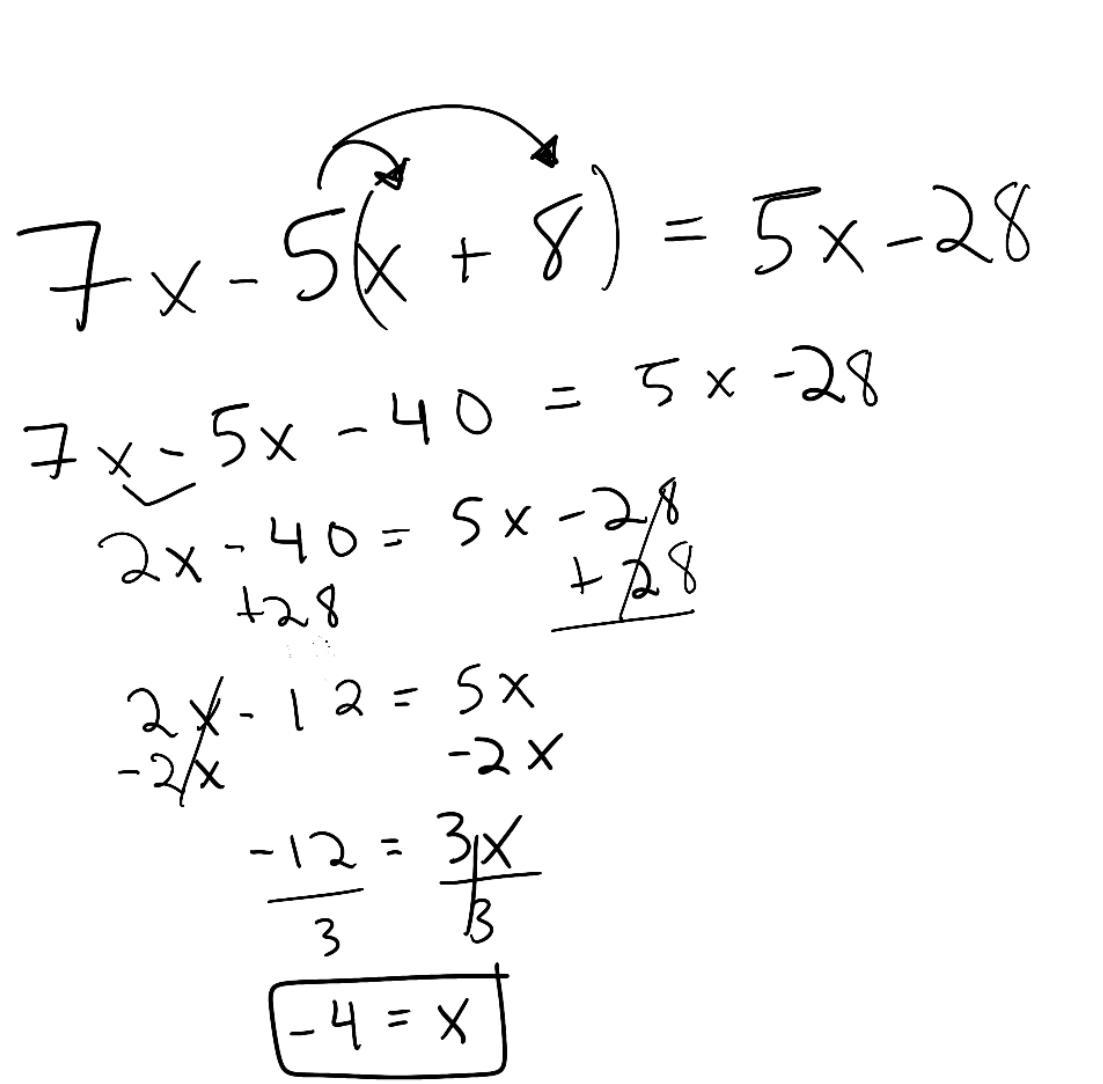 7x - 5(x + 8) = 5x - 28
7x - 5x - 40 = 5x - 28
2x - 40 = 5x - 28
+28 + 28
2x - 12 = 5x
-2x -2x
-12 = 3x
3 3
-4 = x